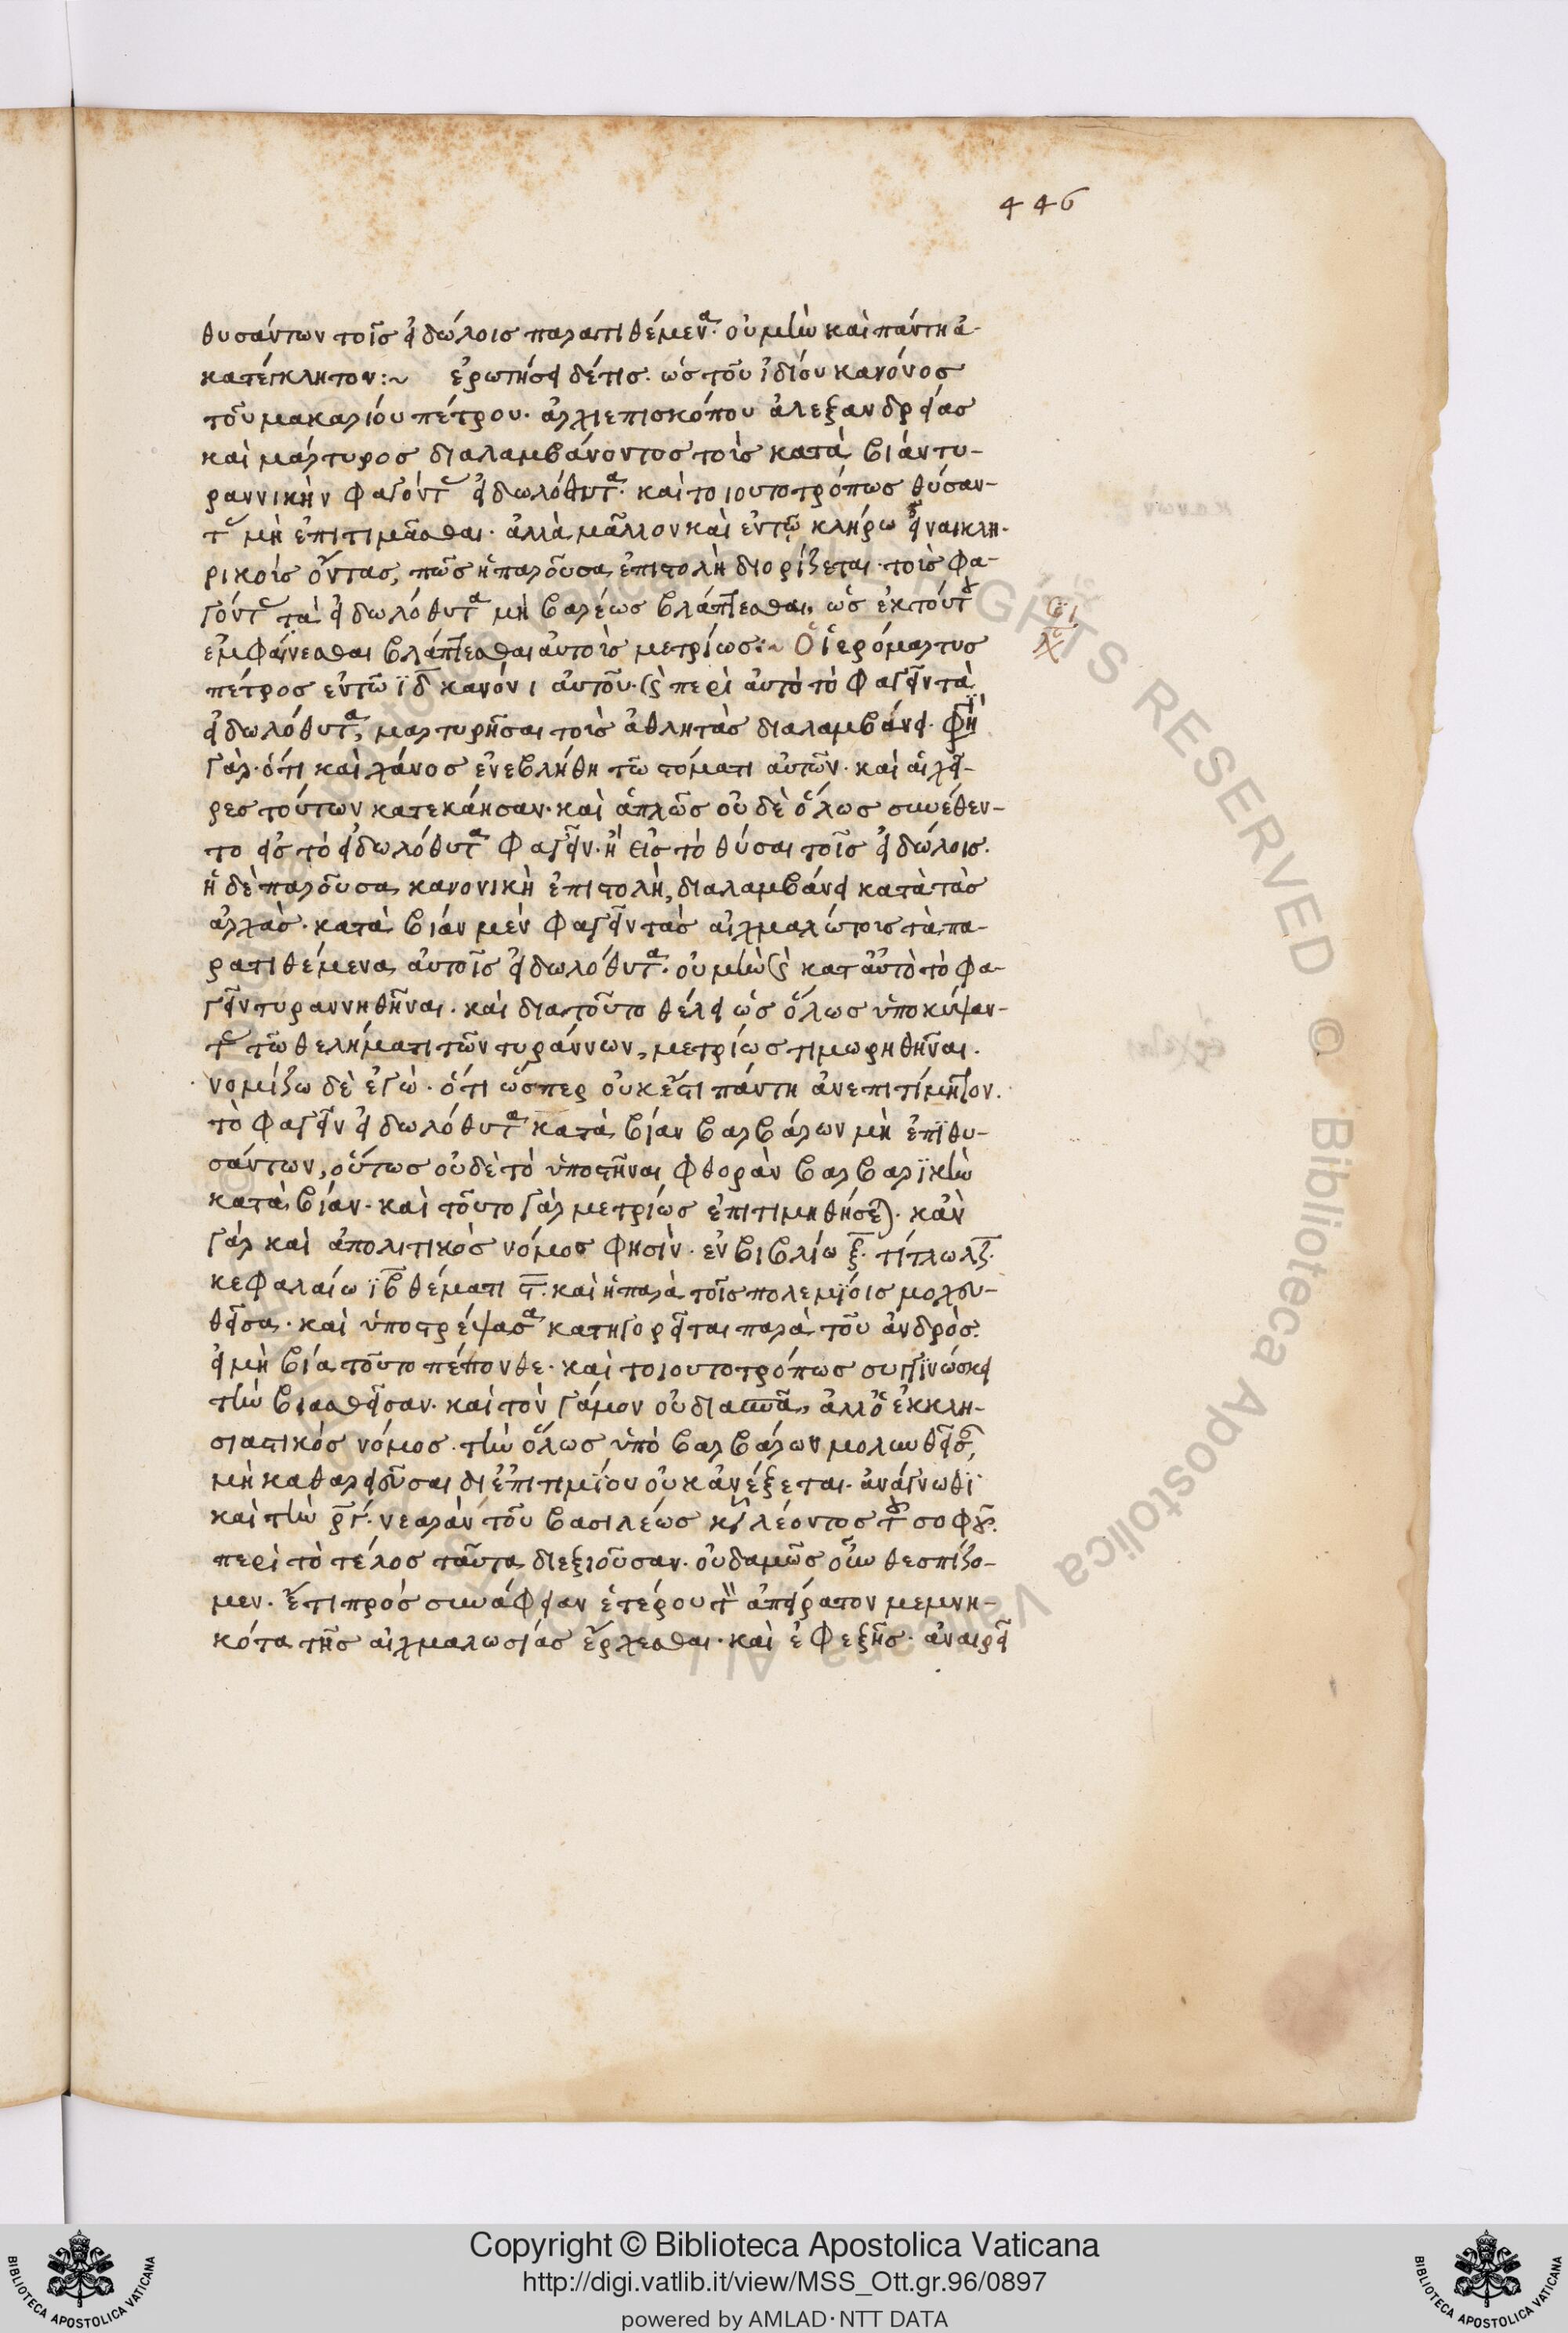 446
θυσάντων τοῖς εἰδώλοις παρατιθέμενα· οὐ μὴν καὶ πάντη ἀ-
κατέγκλητον:~ ἐρωτήσει δέ τις· ὡς τοῦ ἰδίου κανόνος
τοῦ μακαρίου πέτρου· ἀρχιεπισκόπου ἀλεξανδρείας
καὶ μάρτυρος διαλαμβάνοντος τοὺς κατὰ βίαν τυ-
ραννικὴν φαγόντας εἰδωλόθυτα· καὶ τοιουτοτρόπως θύσαν-
τας μὴ ἐπιτιμᾶσθαι· ἀλλὰ μᾶλλον καὶ ἐν τῷ κλήρω εἶναι κλη-
ρικοὺς ὄντας, πῶς ἡ παροῦσα ἐπιστολὴ διορίζεται· τοὺς φα-
γόντας τὰ εἰδωλόθυτα μὴ βαρέως βλάπτεσθαι, ὡς ἐκ τούτου
ἐμφαίνεσθαι βλάπτεσθαι αὐτοὺς μετρίως:~ Ὁ ἱερόμαρτυς
πέτρος ἐν τῶ ϊδ κανόνι αὐτοῦ· καὶ περὶ αὐτὸ τὸ φαγεῖν τὰ
εἰδωλόθυτα, μαρτυρῆσαι τοὺς ἀθλητὰς διαλαμβάνει· φησὶ
γάρ· ὅτι καὶ χάνος ἐνεβλήθη τῶ στόματι αὐτῶν· καὶ αἱ χεῖ-
ρες τούτων κατεκάησαν· καὶ ἁπλῶς οὐδὲ ὅλως συνέθεν-
το εἰς τὸ εἰδωλόθυτα φαγεῖν· ἢ εἰς τὸ θύσαι τοῖς εἰδώλοις.
ἡ δὲ παροῦσα κανονικὴ ἐπιστολὴ, διαλαμβάνει κατὰ τὰς
ἀρχὰς· κατὰ βίαν μὲν φαγεῖν τὰς αἰχμαλώτους τὰ πα-
ρατιθέμενα αὐτοῖς εἰδωλόθυτα· οὐ μὴν καὶ κατ' αὐτὸ τὸ φα-
γεῖν τυραννηθῆναι· καὶ δια τοῦτο θέλει ὡς ὅλως ὑποκύψαν-
τας τῶ θελήματι τῶν τυράννων, μετρίως τιμωρηθῆναι.
νομίζω δὲ ἐγώ· ὅτι ὥσπερ οὐκ ἔστι πάντη ἀνεπιτίμητον.
τὸ φαγεῖν εἰδωλόθυτα κατὰ βίαν βαρβάρων μὴ ἐπϊθυ-
σάντων, οὕτως οὐδὲ τὸ ὑποστῆναι φθορὰν βαρβαρϊκὴν
κατὰ βίαν· καὶ τοῦτο γὰρ μετρίως ἐπιτιμηθήσεται· κἂν
γὰρ καὶ ἀπολιτικὸς νόμος φησὶν· ἐν βιβλίω ξ· τίτλω λζ·
κεφαλαίω ϊβ θέματι στ· καὶ ἡ παρὰ τοῖς πολεμϊόις μολυν-
θεῖσα· καὶ ὑποστρέψασα κατηγορεῖται παρὰ τοῦ ἀνδρὸς·
εἰ μὴ βία τοῦτο πέπονθε· καὶ τοιουτοτρόπως συγγϊνώσκει
τὴν βιασθεῖσαν· καὶ τὸν γάμον οὐ διασπᾶ, ἀλλ' ὁ ἐκκλη-
σιαστικὸς νόμος· τὴν ὅλως ὑπὸ βαρβάρων μολυνθεῖσαν,
μὴ καθαρεῦσαι δι' ἐπιτιμϊόυ οὐκ ἀνέξεται· ἀνάγνωθϊ
καὶ τὴν ργ· νεαρὰν τοῦ βασιλέως κυροῦ λέοντος τοῦ σοφοῦ·
περὶ τὸ τέλος ταῦτα διεξιοῦσαν· οὐδαμῶς οὖν θεσπίζο-
μεν· ἔτι πρὸς συνάφειαν ἑτέρου τὴν ἀπείρατον μεμνη-
κότα τῆς αἰχμαλωσίας ἔρχεσθαι· καὶ ἐφεξῆς· ἀναιρεῖ